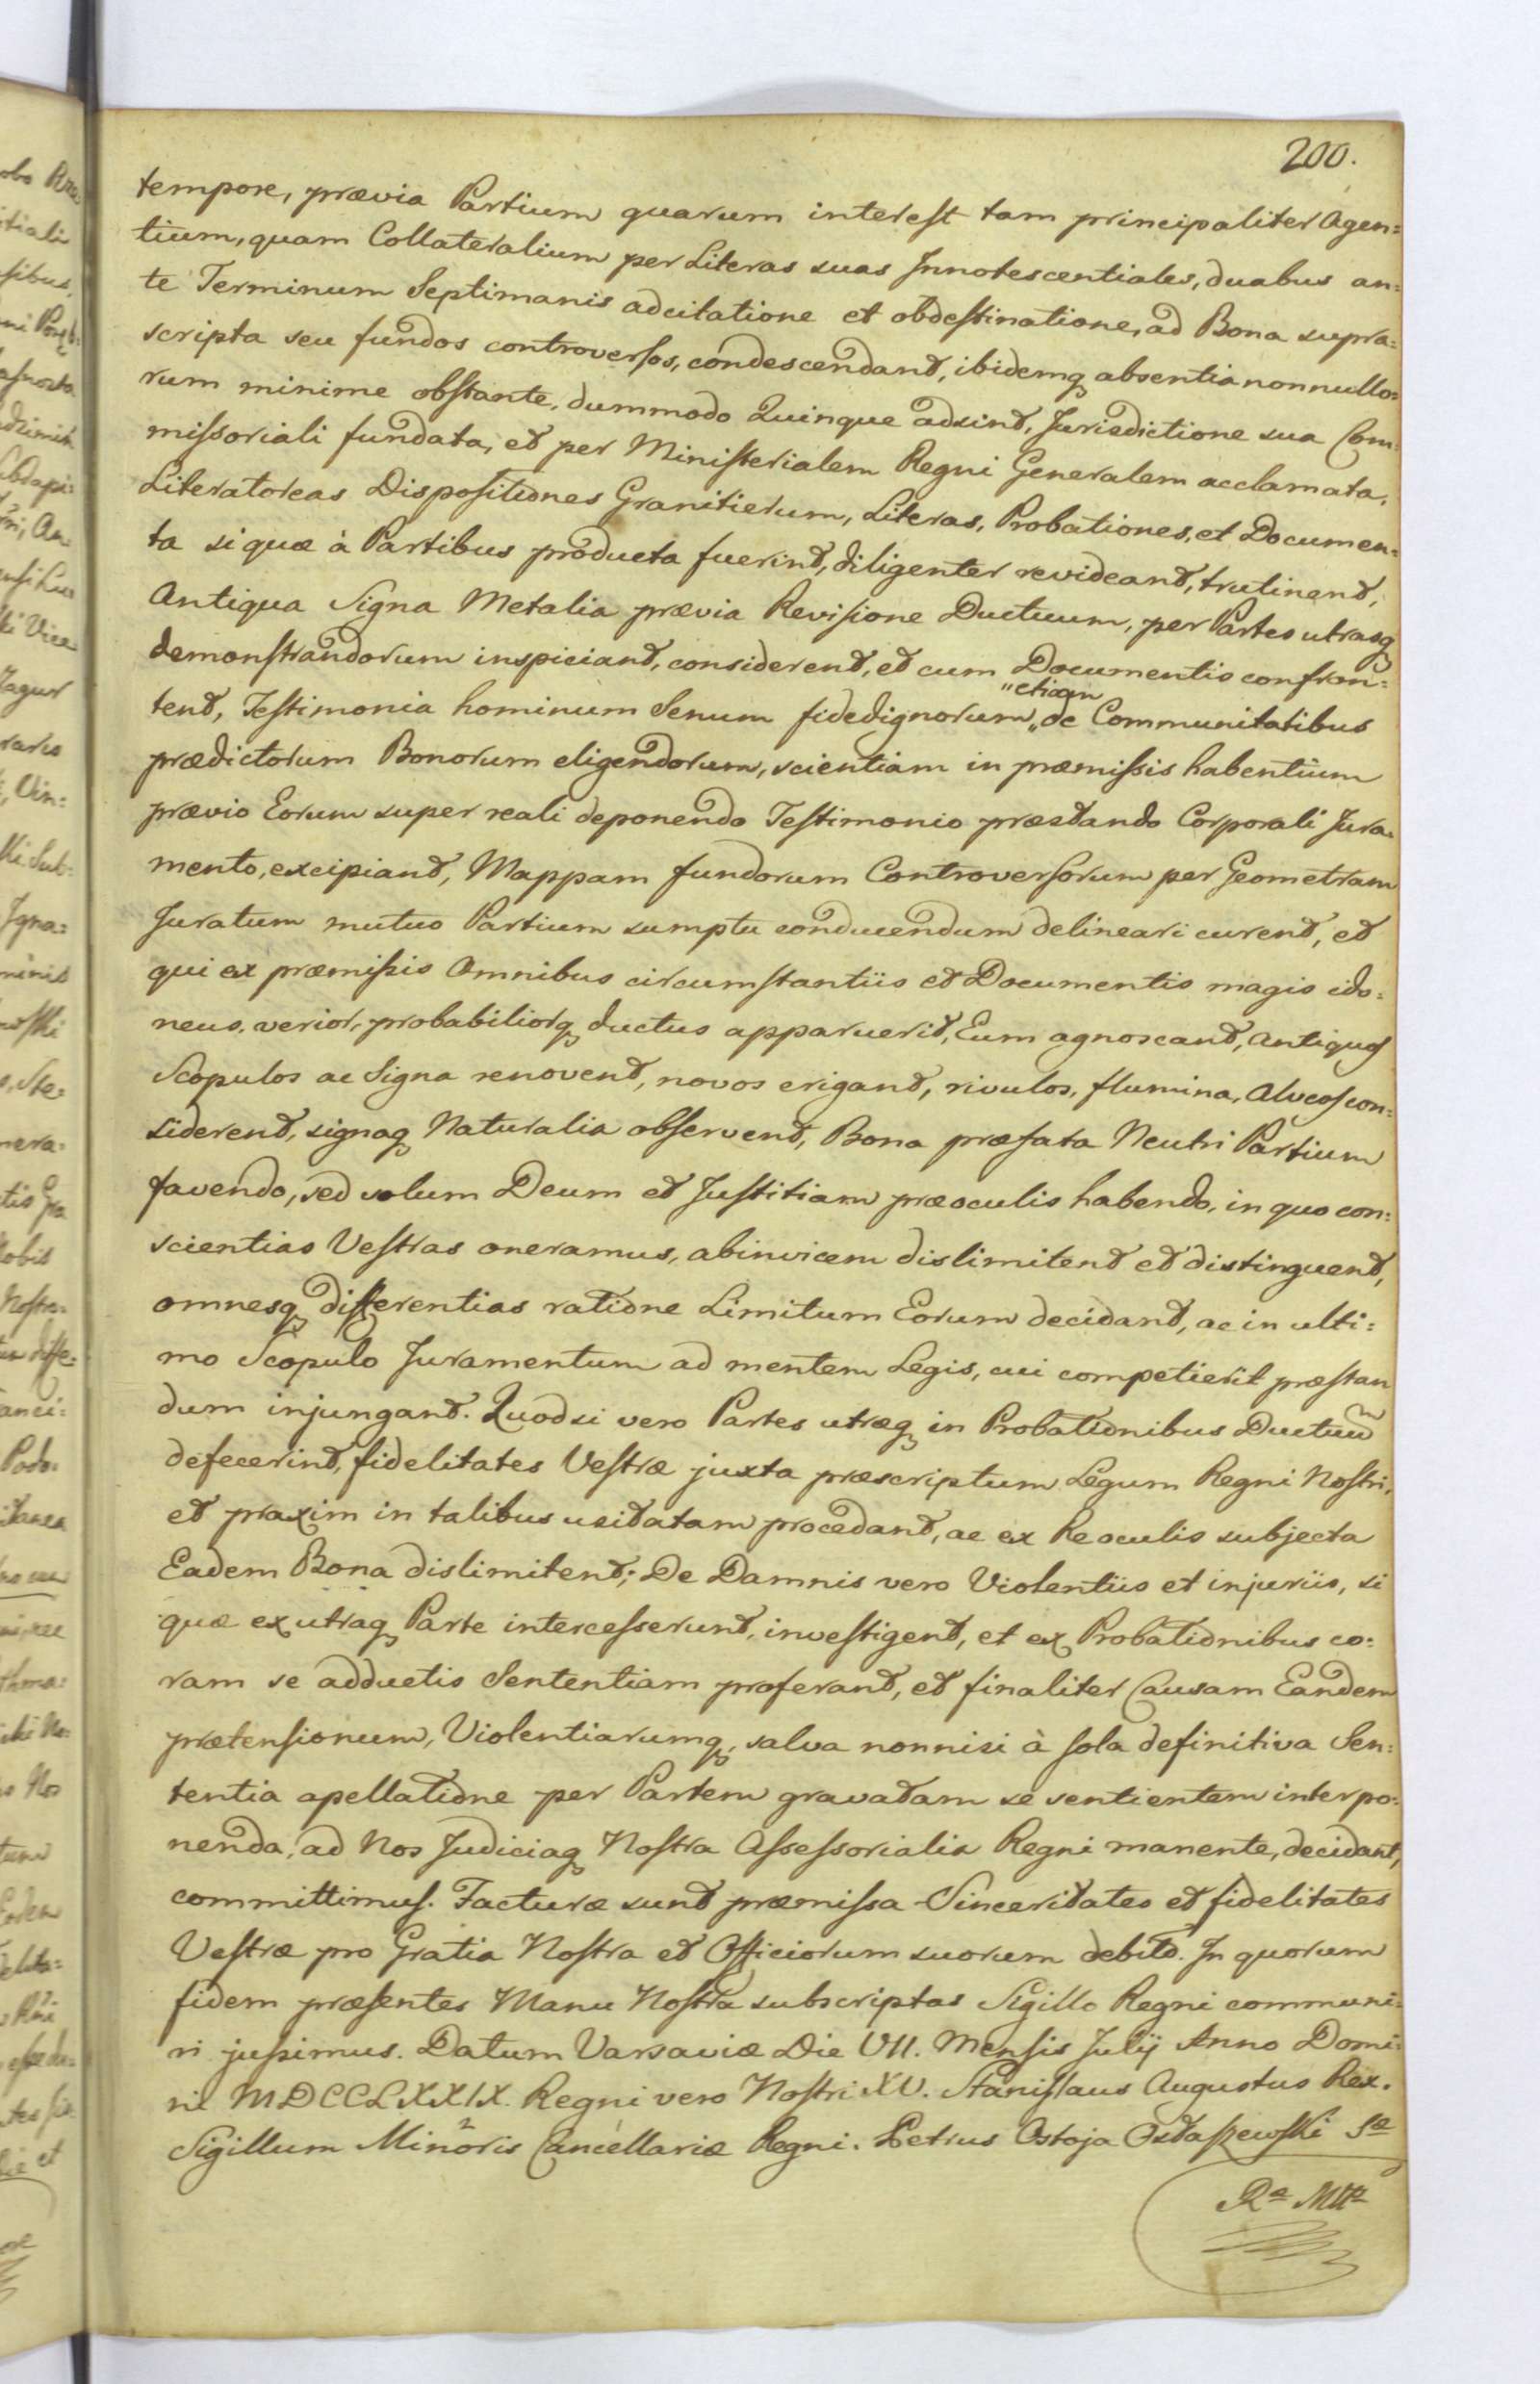 200.
tempore, prævia Partium quarum interest tam principaliter Agen=
tium, quam Collateralium per Literas suas Innotescentiales, duabus an=
te Terminum Septimanis adcitatione et obdestinatione, ad Bona supra=
scripta seu fundos controversos, condescendant, ibidemq absentia nonnullo=
rum minime obstante, dummodo Quinque adsint, Jurisdictione sua Com=
missoriali fundata, et per Ministerialem Regni Generalem acclamata,
Literatoreas Dispositiones Granitierum, Literas, Probationes, et Documen=
ta si quæ à Partibus producta fuerint, diligenter revideant, trutinent,
Antiqua Signa Metalia prævia Revisione Ductuum, per Partes utrasq
demonstrandorum inspiciant, considerent, et cum Documentis confron=
"etiam
tent, Testimonia hominum Senum fidedignorum „de Communitatibus
prædictorum Bonorum eligendorum, scientiam in præmissis habentium
prævio Eorum super reali deponendo Testimonio præstando Corporali Jura=
mento, excipiant, Mappam fundorum Controversorum per Geometram
Juratum mutuo Partium sumptu conducendum delineari curent, et
qui ex præmissis Omnibus circumstantiis et Documentis magis ido=
neus, verior, probabiliorq ductus apparuerit, Eum agnoscant, Antiquos
Scopulos ac Signa renovent, novos erigant, rivulos, flumina, Alveos con=
siderent, signaq Naturalia observent, Bona præfata Neutri Partium
favendo, sed solum Deum et Justitiam præ oculis habendo, in quo con=
scientias Vestras oneramus, abinvicem dislimitent et distinguent,
omnesq differentias ratione Limitum Eorum decidant, ac in ulti=
mo Scopulo Juramentum ad mentem Legis, cui competierit præstan
dum injungant. Quodsi vero Partes utræq in Probationibus Ductuum
defecerint, fidelitates Vestræ juxta præscriptum Legum Regni Nostri,
et praxim in talibus usitatam procedant, ac ex Re oculis subjecta
Eadem Bona dislimitent; De Damnis vero Violentiis et injuriis, si
quæ ex utraq Parte intercesserunt, investigent, et ex Probationibus co=
ram se adductis Sententiam proferant, et finaliter Causam Eandem
prætensionum, Violentiarumq, salva nonnisi à sola definitiva Sen=
tentia apellatione per Partem gravatam se sentientem interpo=
nenda, ad Nos Judiciaq Nostra Assessorialia Regni manente, decidant,
committimus. Facturæ sunt præmissa Sinceritates et fidelitates
Vestræ pro Gratia Nostra et Officiorum suorum debito. In quorum
fidem præsentes Manu Nostra subscriptas Sigillo Regni communi=
ri jussimus. Datum Varsaviæ Die VII. Mensis Julij Anno Domi=
ni MDCCLXXIX. Regni vero Nostri XV. Stanislaus Augustus Rex.
Sigillum Minoris Cancellariæ Regni. Petrus Ostoja Ostaszewski Sæ
Ræ Mttis